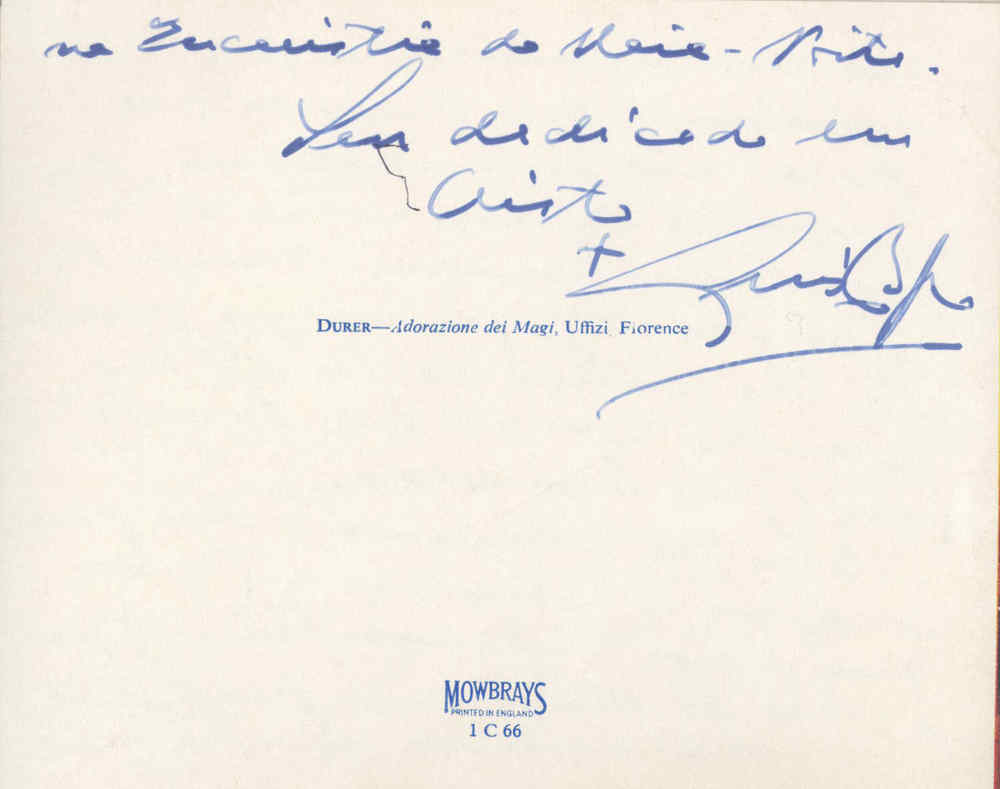 na Eucaristia da Meia-Noite.
Seu dedicado em
Cristo
+
DURER—Adorazione dei Magi, Uffizi, Florence
MOWBRAYS
PRINTED IN ENGLAND
1 C 66